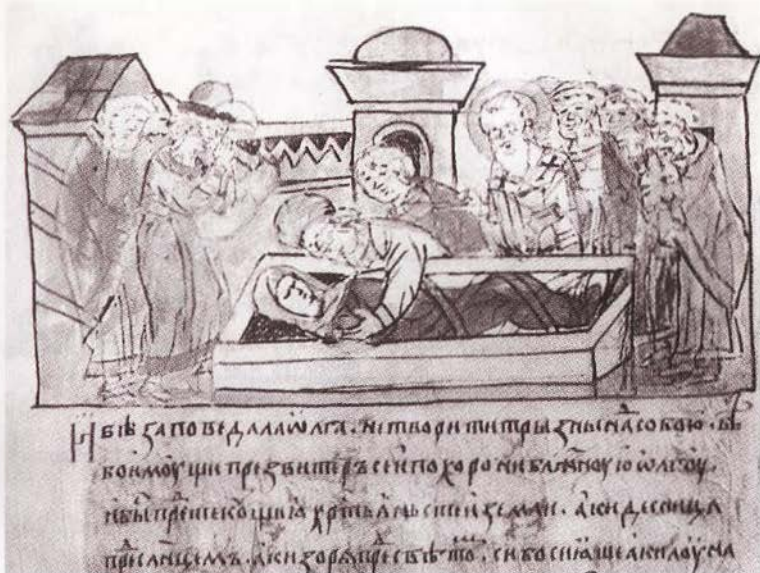 И бѣ заповѣдала Ѡлга . не творити трызны на собою . бѣ
бо имоущи презвитеръ сеи похорони блжноую Ѡлгоу .
си бы прдтекоущиꙗ крьстьꙗньстѣи земли . аки деньница
прд слнцемь . аки зорꙗ прд свѣтомъ . си бо сиꙗше аки лоуна